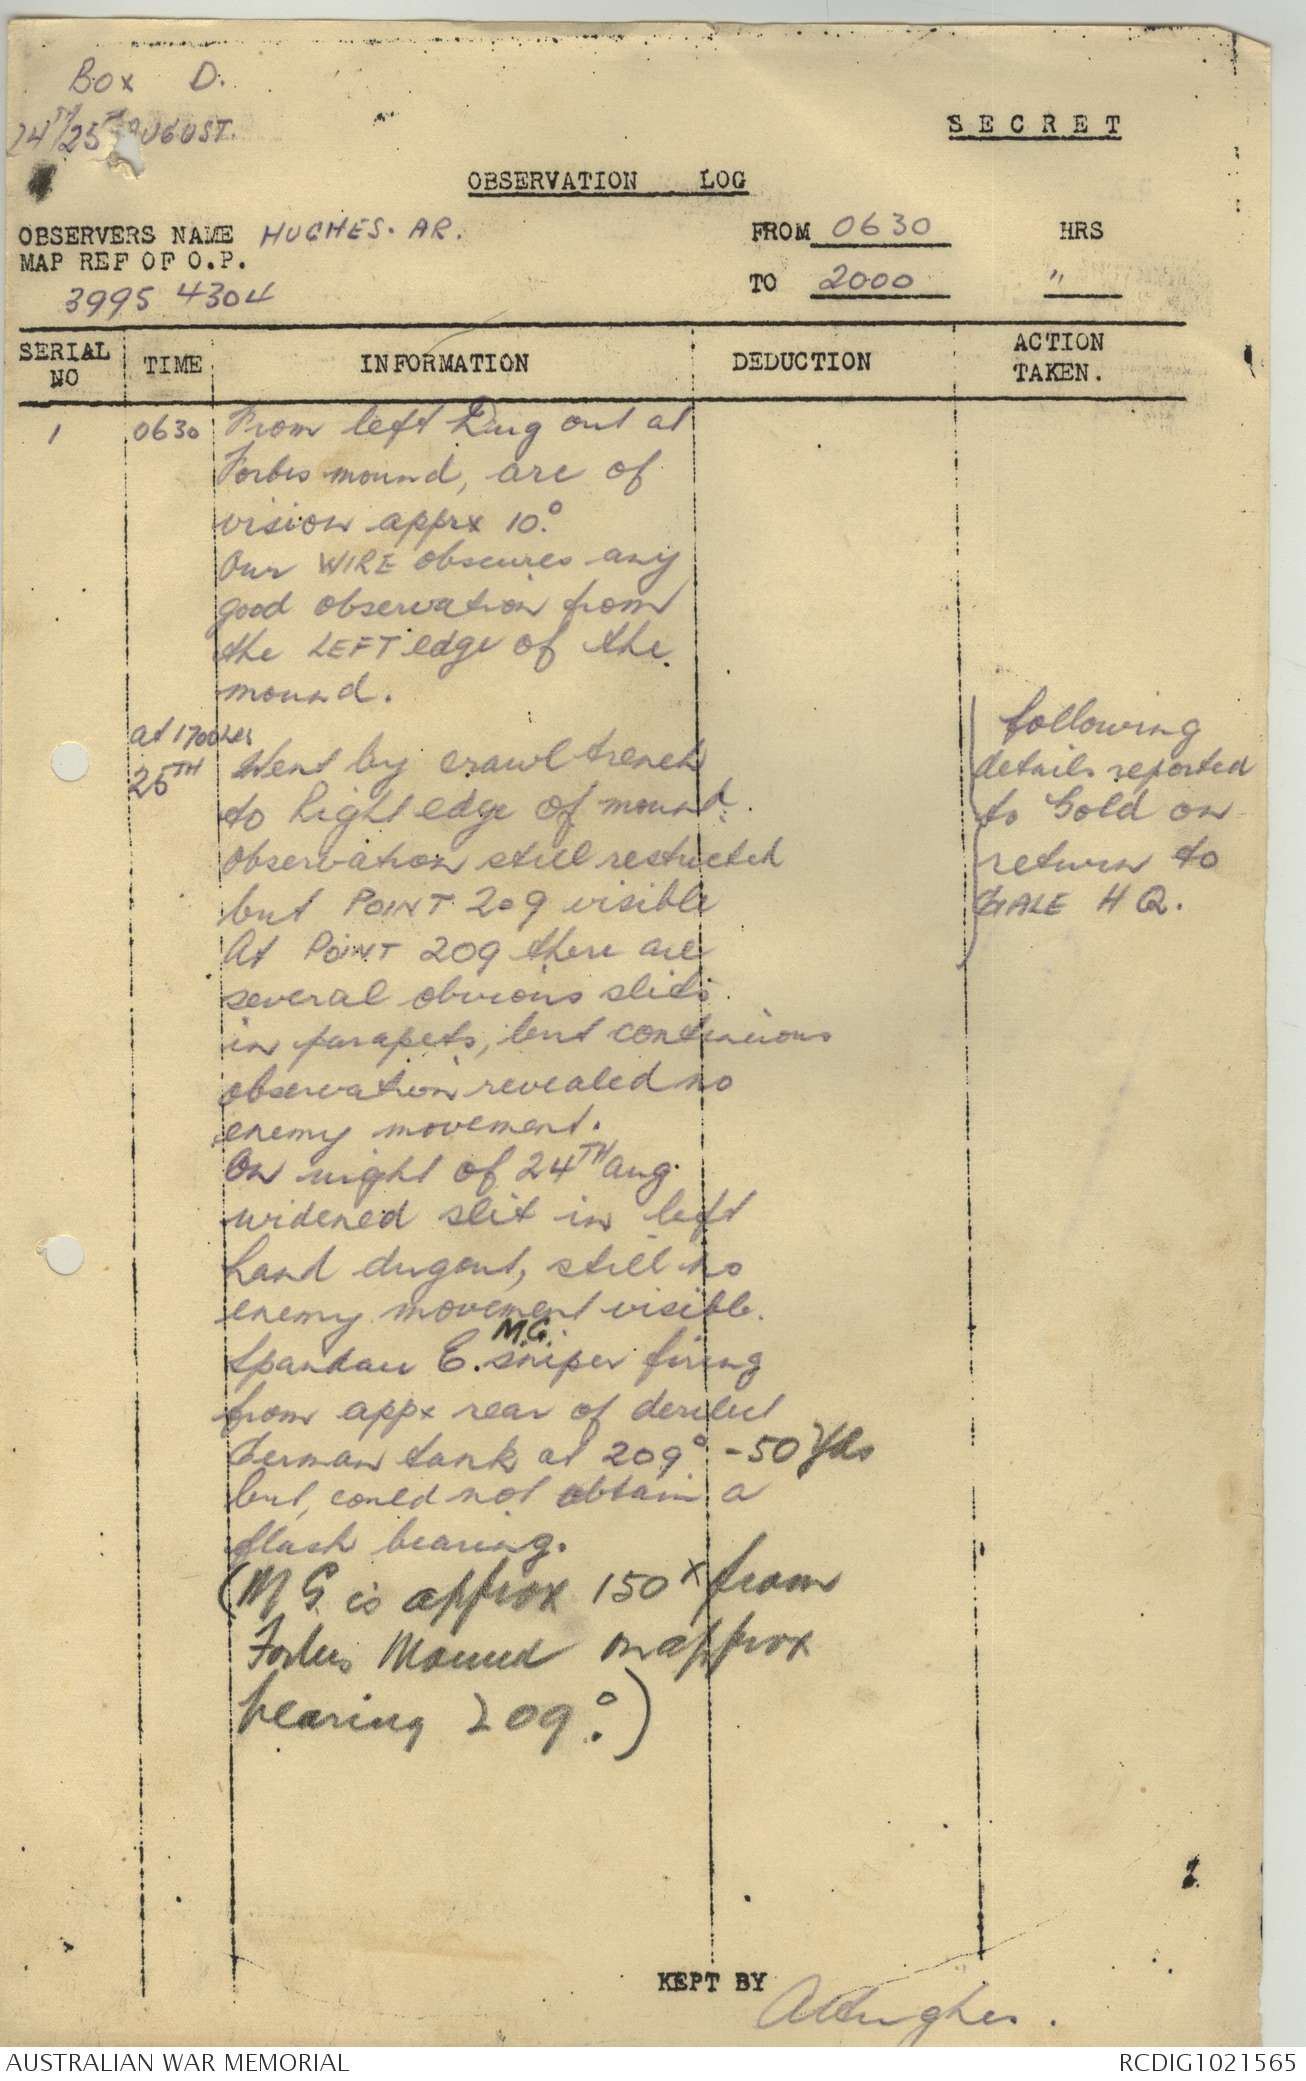 Box D.
24TH/25TH AUGUST.
SECRET
OBSERVATION LOG
OBSERVERS NAME HUGHES. AR.
FROM 0630 HRS
MAP REF OF O.P.
3995 4304
TO 2000 "
SERIAL NO
TIME
INFORMATION
DEDUCTION
ACTION TAKEN.
1 0630 From left Dug out at
Forbes mound, arc of
vision apprx 10°.
Our WIRE obscures any
good observation from
the LEFT edge of the
mound.
at 1700hrs
25TH Went by crawl trench
to Right edge of mound.
Observation still restricted
but POINT 209 visible
At POINT 209 there are
several obvious slits
in parapets, but continuous
observation revealed no
enemy movement.
On night of 24TH Aug.
widened slit in left
hand dugout, still no
enemy movement visible.
M.G.
Spandau E. sniper firing
from appx rear of derelict
German tank at 209° - 50 Yds
but, could not obtain a
flash bearing.
(MG is approx 150x from
Forbes Mound on approx
bearing 209°.)
following
details reported
to Gold on
return to
GALE HQ.
KEPT BY
A Hughes.
AUSTRALIAN WAR MEMORIAL
RCDIG1021565